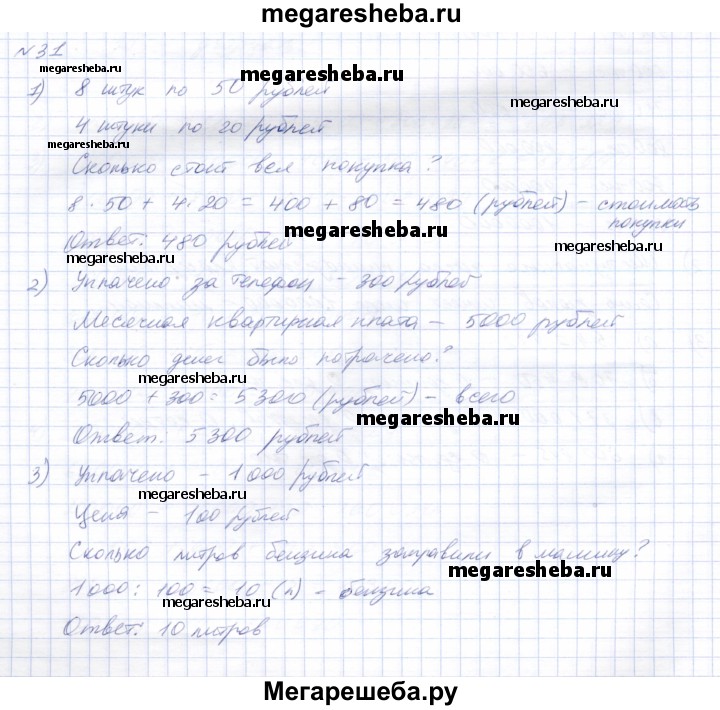 megaresheba.ru
№31
megaresheba.ru
megaresheba.ru
1) 8 штук по 50 рублей
megaresheba.ru
4 штуки по 20 рублей
Сколько стоит вся покупка?
8 · 50 + 4 · 20 = 400 + 80 = 480 (рублей) – стоимость
покупки
megaresheba.ru
Ответ: 480 рублей
megaresheba.ru
megaresheba.ru
2) Уплачено за телефон – 300 рублей
Месячная квартирная плата – 5000 рублей
Сколько денег было потрачено?
megaresheba.ru
5000 + 300 = 5300 (рублей) – всего
megaresheba.ru
Ответ: 5300 рублей
3) Уплачено – 1000 рублей
megaresheba.ru
Цена – 100 рублей
Сколько литров бензина заправили в машину?
megaresheba.ru
1000 : 100 = 10 (л) – бензина
megaresheba.ru
Ответ: 10 литров
Мегарешеба.ру